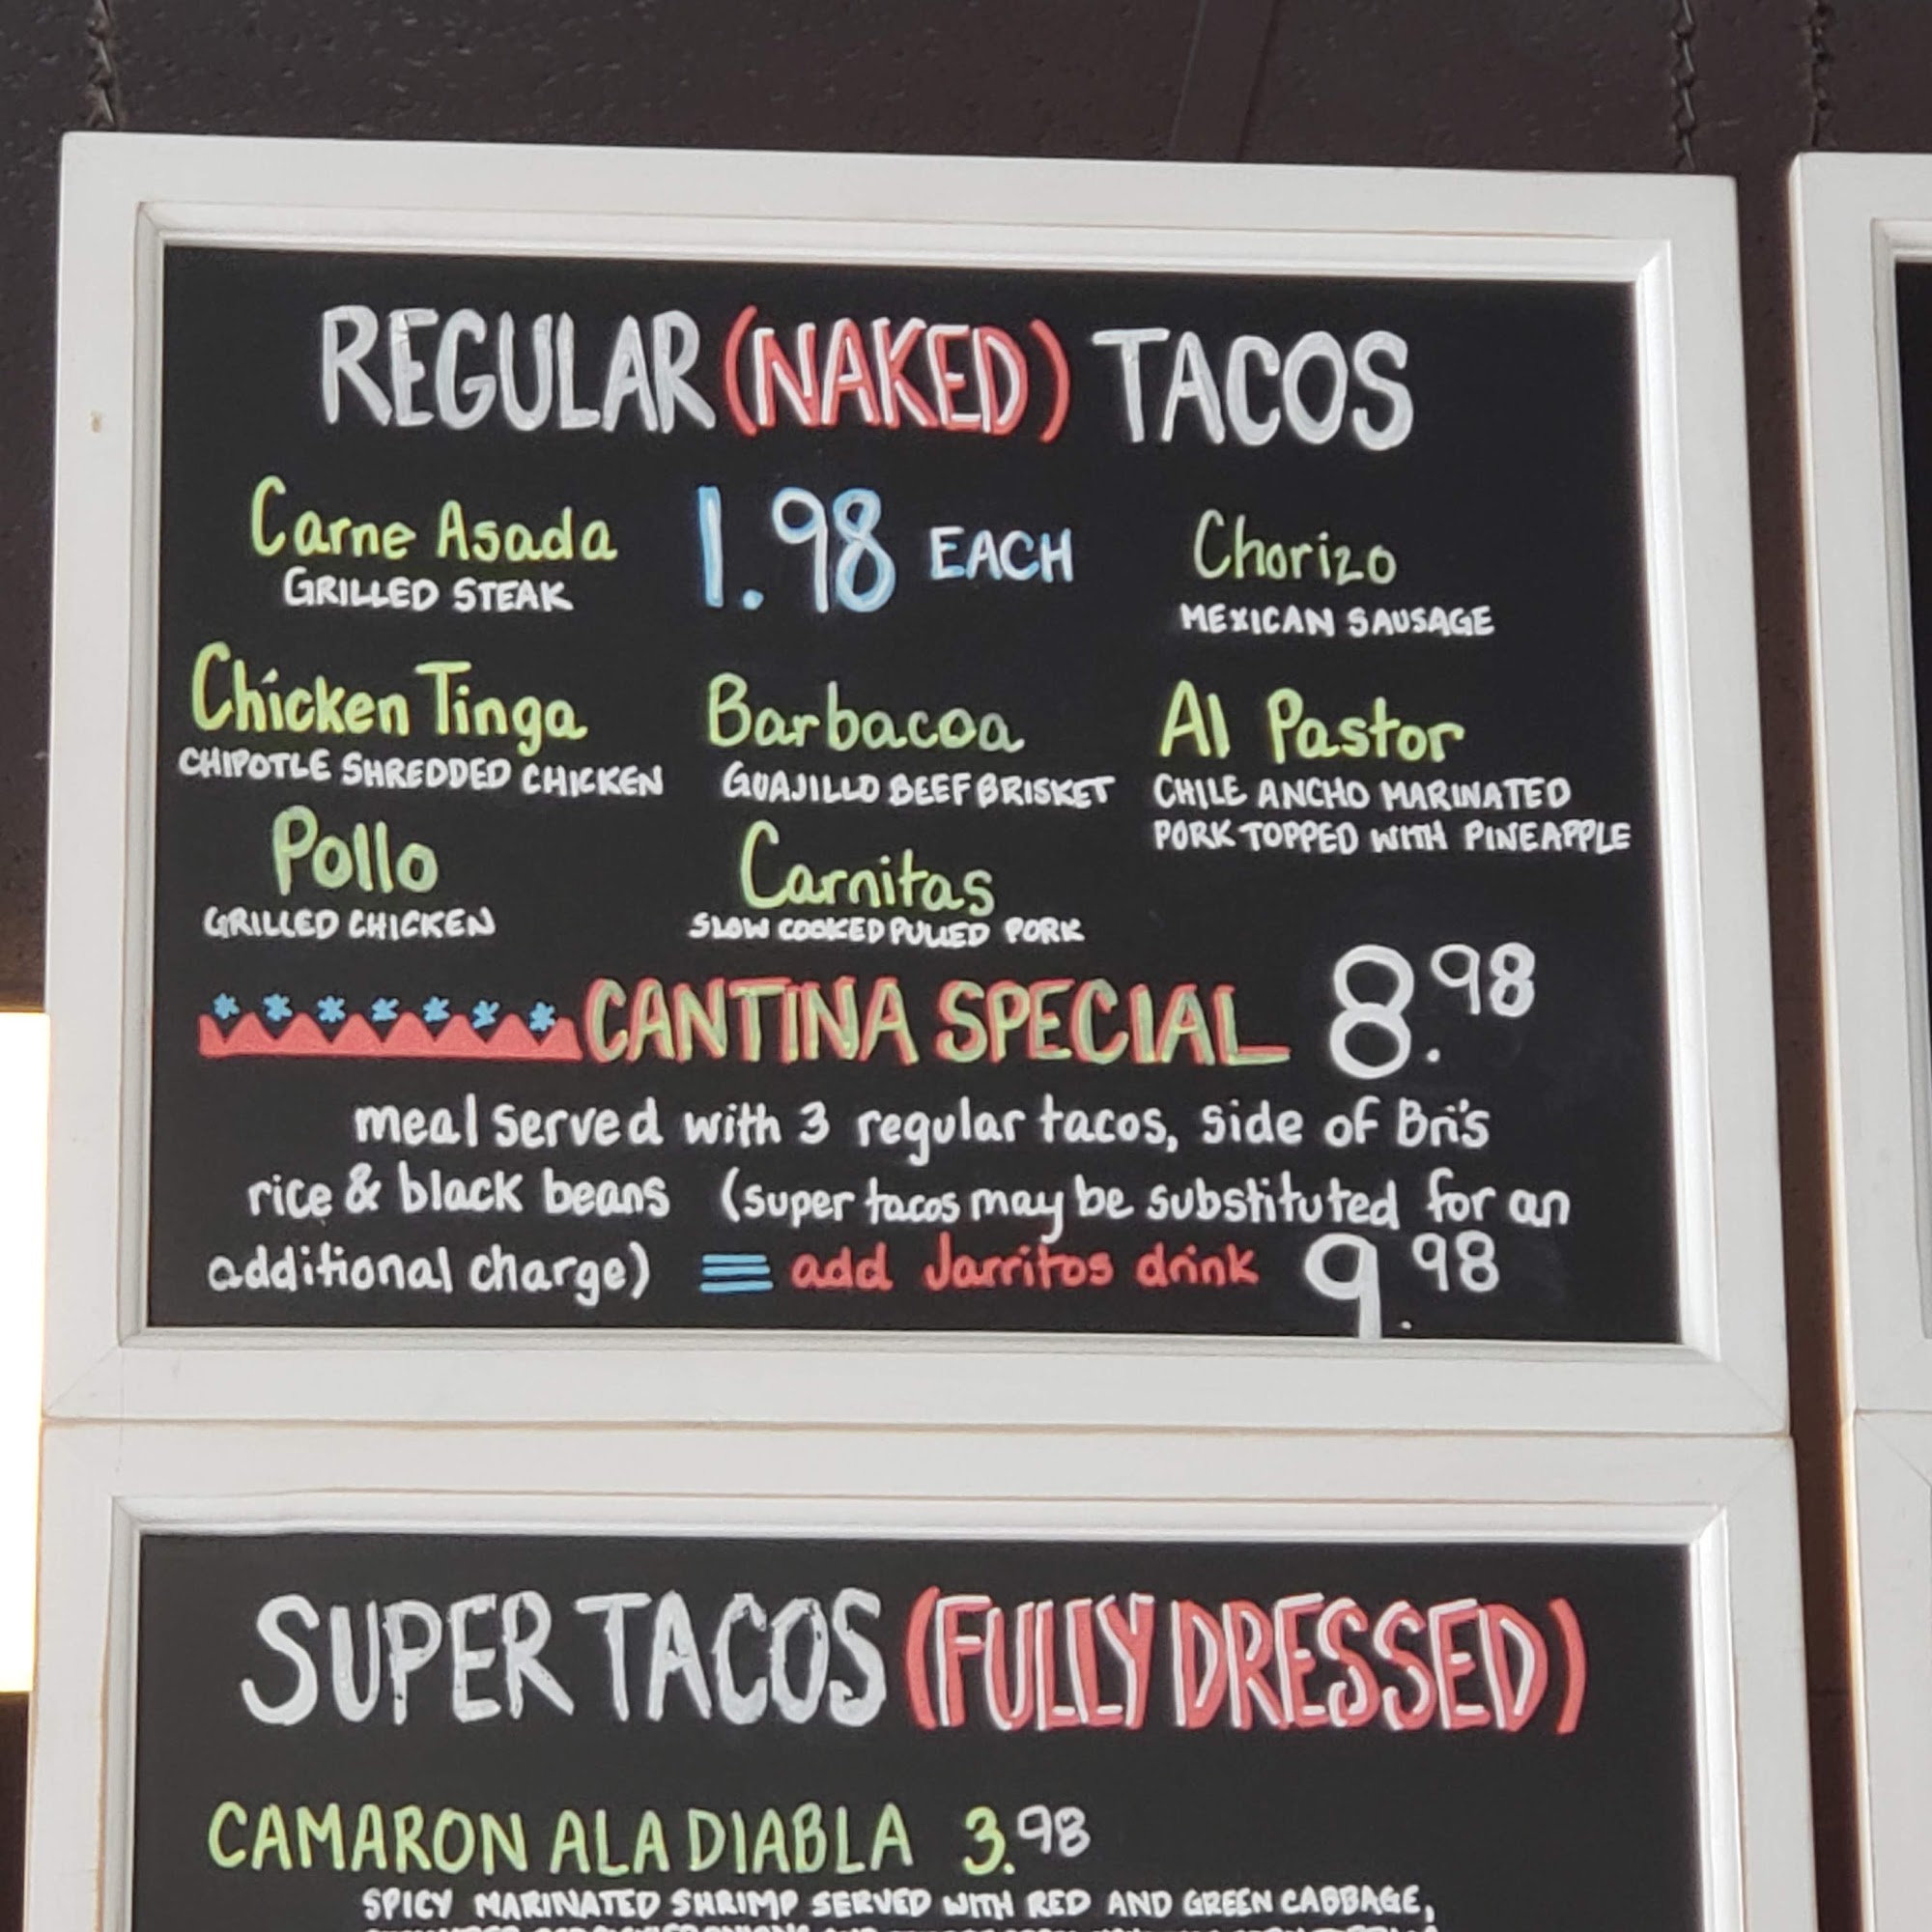 REGULAR (NAKED) TACOS
Carne Asada 1.98 EACH Chorizo
GRILLED STEAK MEXICAN SAUSAGE
Chicken Tinga Barbacoa Al Pastor
CHIPOTLE SHREDDED CHICKEN GUAJILLO BEEF BRISKET CHILE ANCHO MARINATED
PORK TOPPED WITH PINEAPPLE
Pollo Carnitas
GRILLED CHICKEN SLOW COOKED PULLED PORK
CANTINA SPECIAL 8.98
meal served with 3 regular tacos, side of Bri's
rice & black beans (super tacos may be substituted for an
additional charge) add Jarritos drink 9.98
SUPER TACOS (FULLY DRESSED)
CAMARON ALA DIABLA 3.98
SPICY MARINATED SHRIMP SERVED WITH RED AND GREEN CABBAGE,